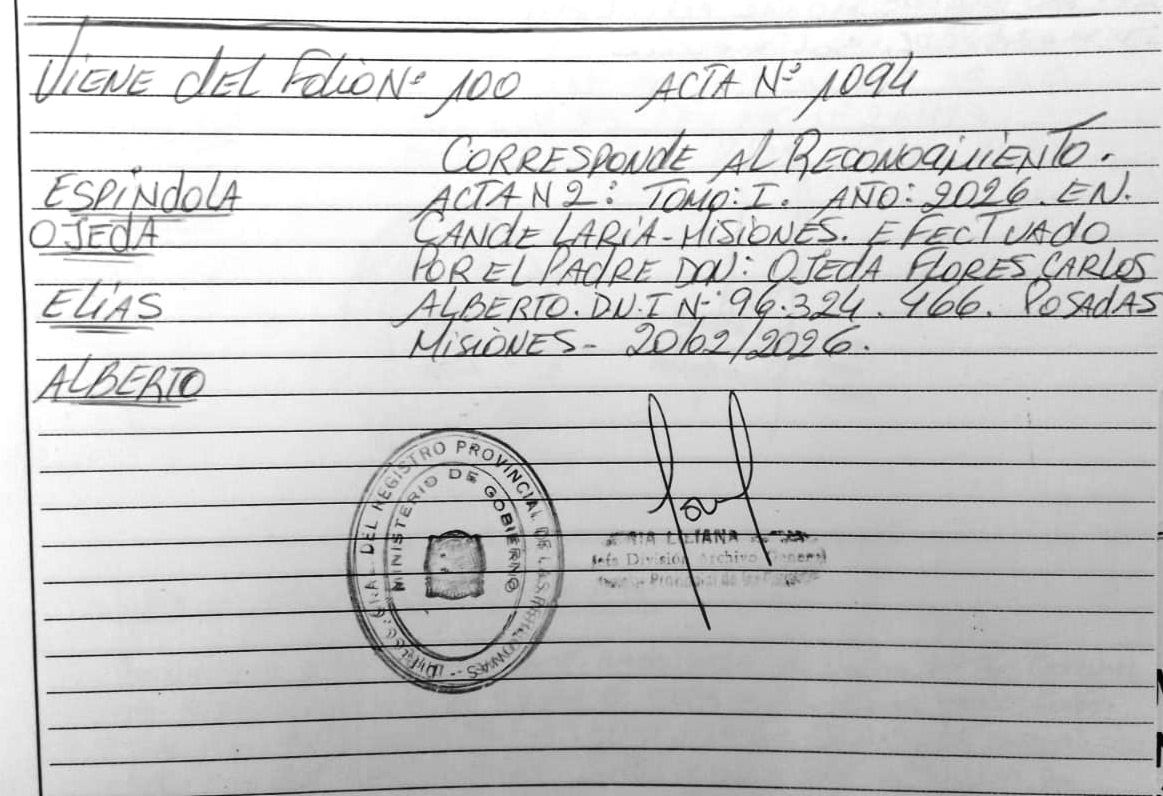 VIENE dEL FOLIO Nº 100 ACTA Nº 1094
CORRESPONDE AL RECONOCIMIENTO.
ESPÍNdOLA ACTA N 2: TOMO: I. AÑO: 2026. EN.
OJEdA CANDELARIA-MISIONES. EFECTUADO
POR EL PADRE DON: OJEDA FLORES CARLOS
ELÍAS ALBERTO. D.N.I Nº 96.324.466. POSADAS
MISIONES- 20/02/2026.
ALBERTO
DEL REGISTRO PROVINCIAL DE LAS PERSONAS
MINISTERIO DE GOBIERNO
LILIANA
Jefe División Archivo General
Provincial de las